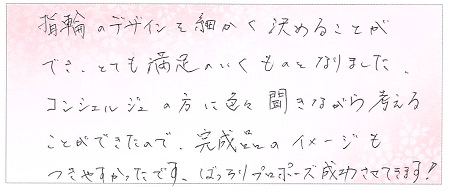 指輪のデザインを細かく決めることが
でき、とても満足のいくものとなりました。
コンシェルジュの方に色々聞きながら考える
ことができたので、完成品のイメージも
つきやすかったです。ばっちりプロポーズ成功させてきます!